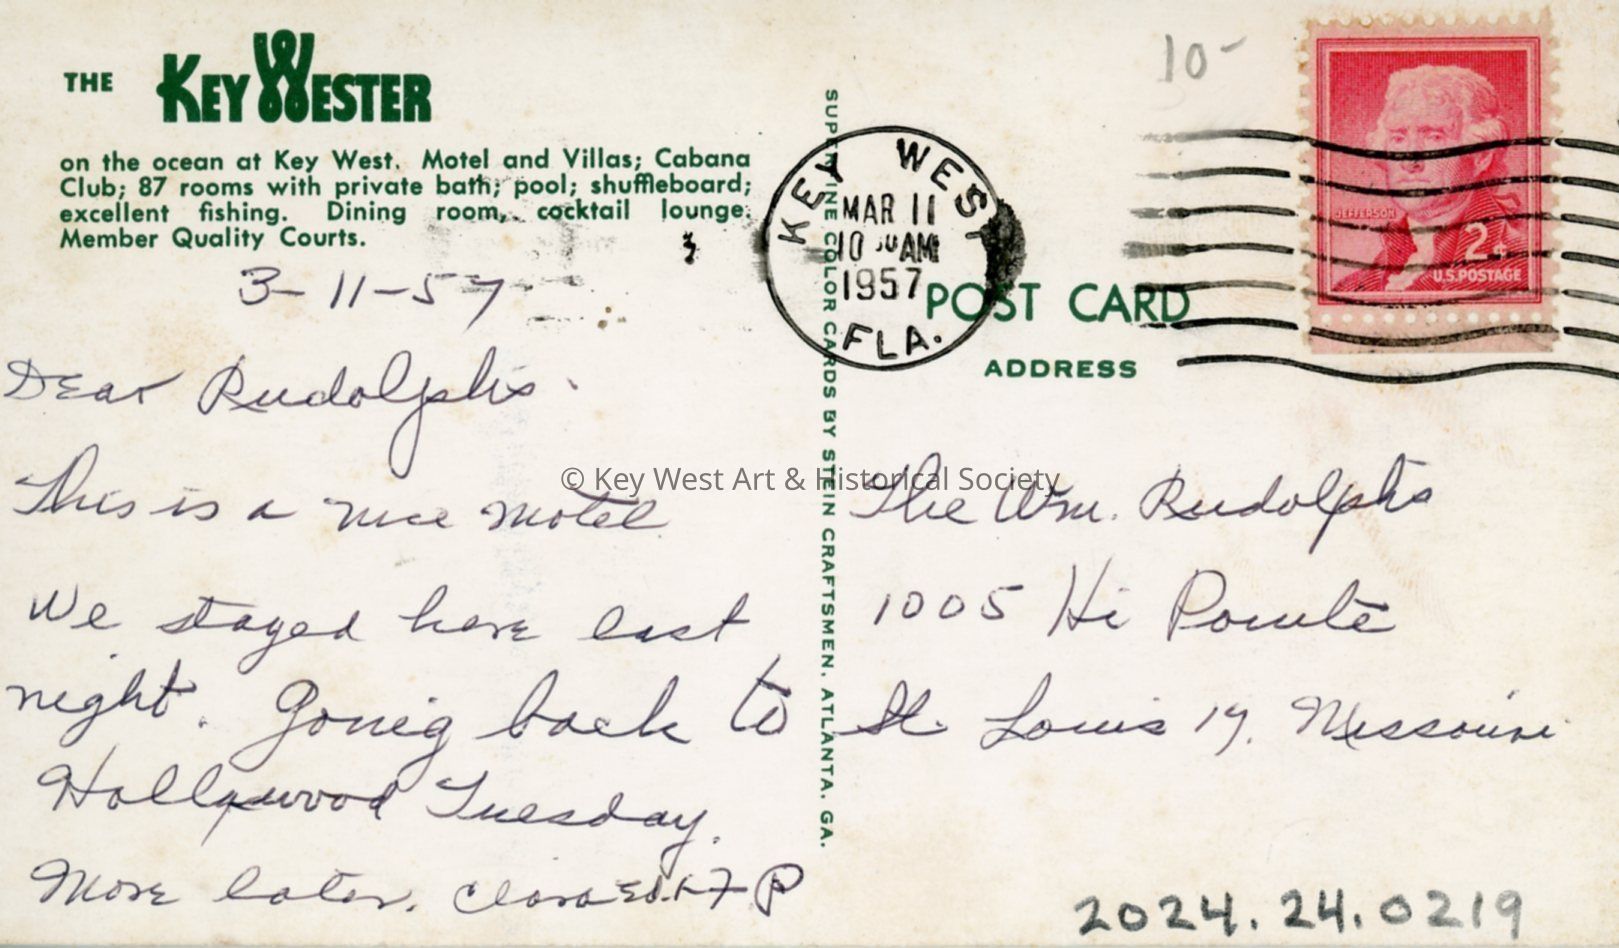 THE KEY WESTER
on the ocean at Key West. Motel and Villas; Cabana
Club; 87 rooms with private bath; pool; shuffleboard;
excellent fishing. Dining room, cocktail lounge.
Member Quality Courts.
3-11-57
Dear Rudolphs.
This is a nice motel
We stayed here last
night. Going back to
Hollywood Tuesday.
More later. Clara Ed.
SUPERFINE COLOR CARDS BY STEIN CRAFTSMEN. ATLANTA. GA.
10-
KEY WEST
MAR 11
10 30 AM
1957
FLA.
JEFFERSON
2¢
U.S. POSTAGE
POST CARD
ADDRESS
The Wm. Rudolphs
1005 Hi Pointe
St. Louis 17, Missouri
© Key West Art & Historical Society
2024.24.0219